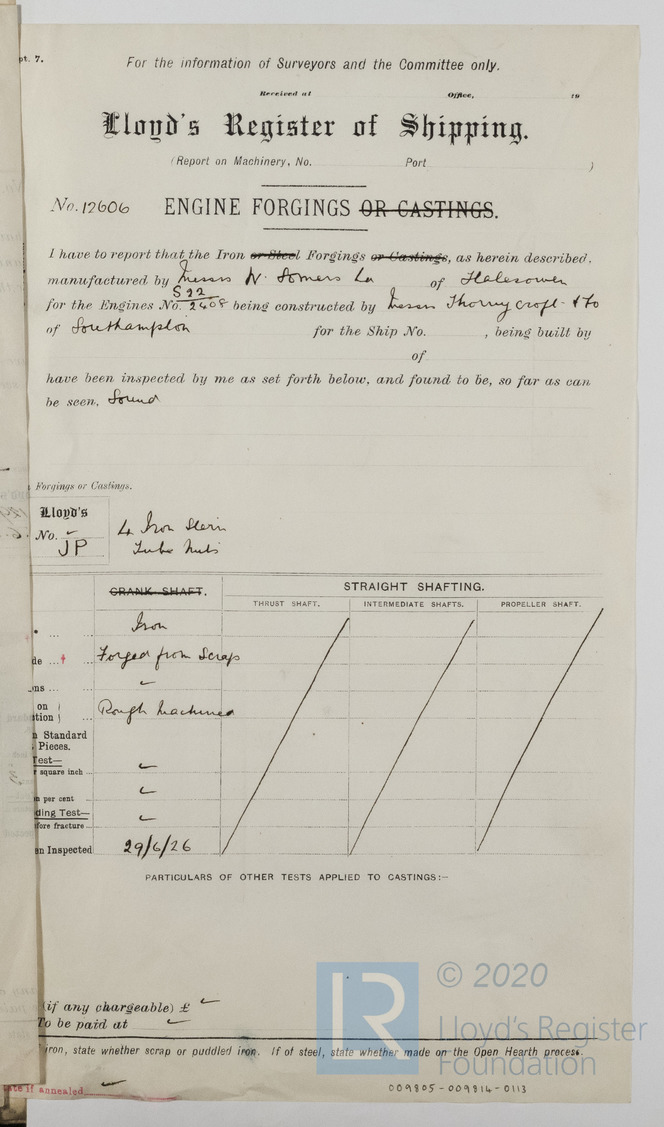 pt. 7.
For the information of Surveyors and the Committee only.
Received at Office, 19
Lloyd's Register of Shipping.
(Report on Machinery, No. Port )
No. 12606 ENGINE FORGINGS OR CASTINGS.
I have to report that the Iron or Steel Forgings or Castings, as herein described,
manufactured by Messrs W. Somers Ld of Halesowen
S 22
for the Engines No. 2408 being constructed by Messrs Thornycroft & Co
of Southampton for the Ship No. , being built by
of
have been inspected by me as set forth below, and found to be, so far as can
be seen, Sound
Forgings or Castings.
Lloyd's
No.
JP
4 Iron Stern
Tube Nuts
CRANK SHAFT. STRAIGHT SHAFTING.
THRUST SHAFT. INTERMEDIATE SHAFTS. PROPELLER SHAFT.
Iron
de ...† ... Forged from Scrap
ns ... ...
on )
tion ) ... Rough Machined
Standard
Pieces.
Test—
square inch ...
per cent ...
ding Test—
fore fracture ...
en Inspected 29/6/26
PARTICULARS OF OTHER TESTS APPLIED TO CASTINGS:—
(if any chargeable) £
To be paid at
iron, state whether scrap or puddled iron. If of steel, state whether made on the Open Hearth process.
ate if annealed
© 2020
Lloyd's Register
Foundation
LR
009805-009814-0113